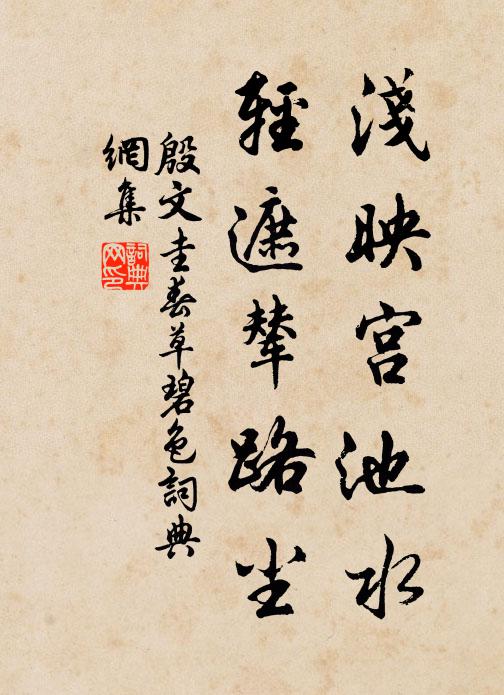 淺映宫池水
輕遮輦路尘
殷文圭春草碧色詞典
網集
詞典
网印